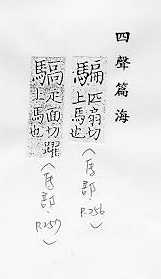 四聲篇海
騙 匹扇切
上馬也
（馬部. P.256）
疋面切躍
上馬也
（馬部. P.257）